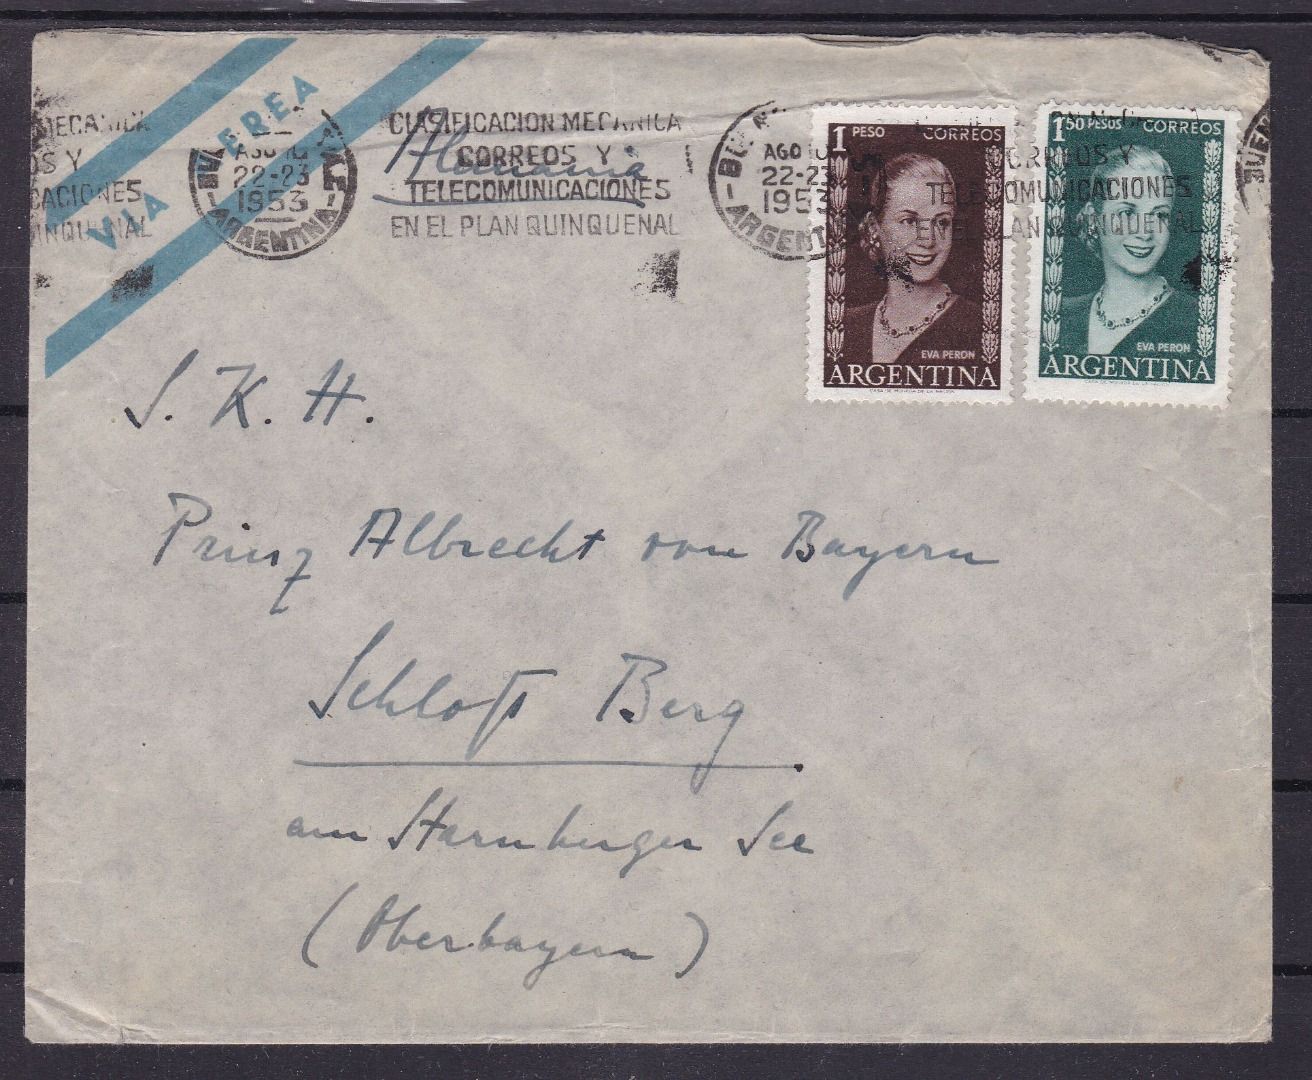 VIA AEREA
MECANICA
OS Y
CACIONES
INQUENAL
AGO
22-23
1953
ARGENTINA
CLASIFICACION MECANICA
CORREOS Y
TELECOMUNICACIONES
EN EL PLAN QUINQUENAL
Alemania
AGO
22-23
1953
ARGENTI
1 PESO CORREOS
EVA PERON
ARGENTINA
CASA DE MONEDA DE LA NACION
1 50 PESOS CORREOS
EVA PERON
ARGENTINA
CASA DE MONEDA DE LA NACION
CORREOS Y
TELECOMUNICACIONES
EN EL PLAN QUINQUENAL
S. K. H.
Prinz Albrecht von Bayern
Schloß Berg
am Starnberger See
(Oberbayern)